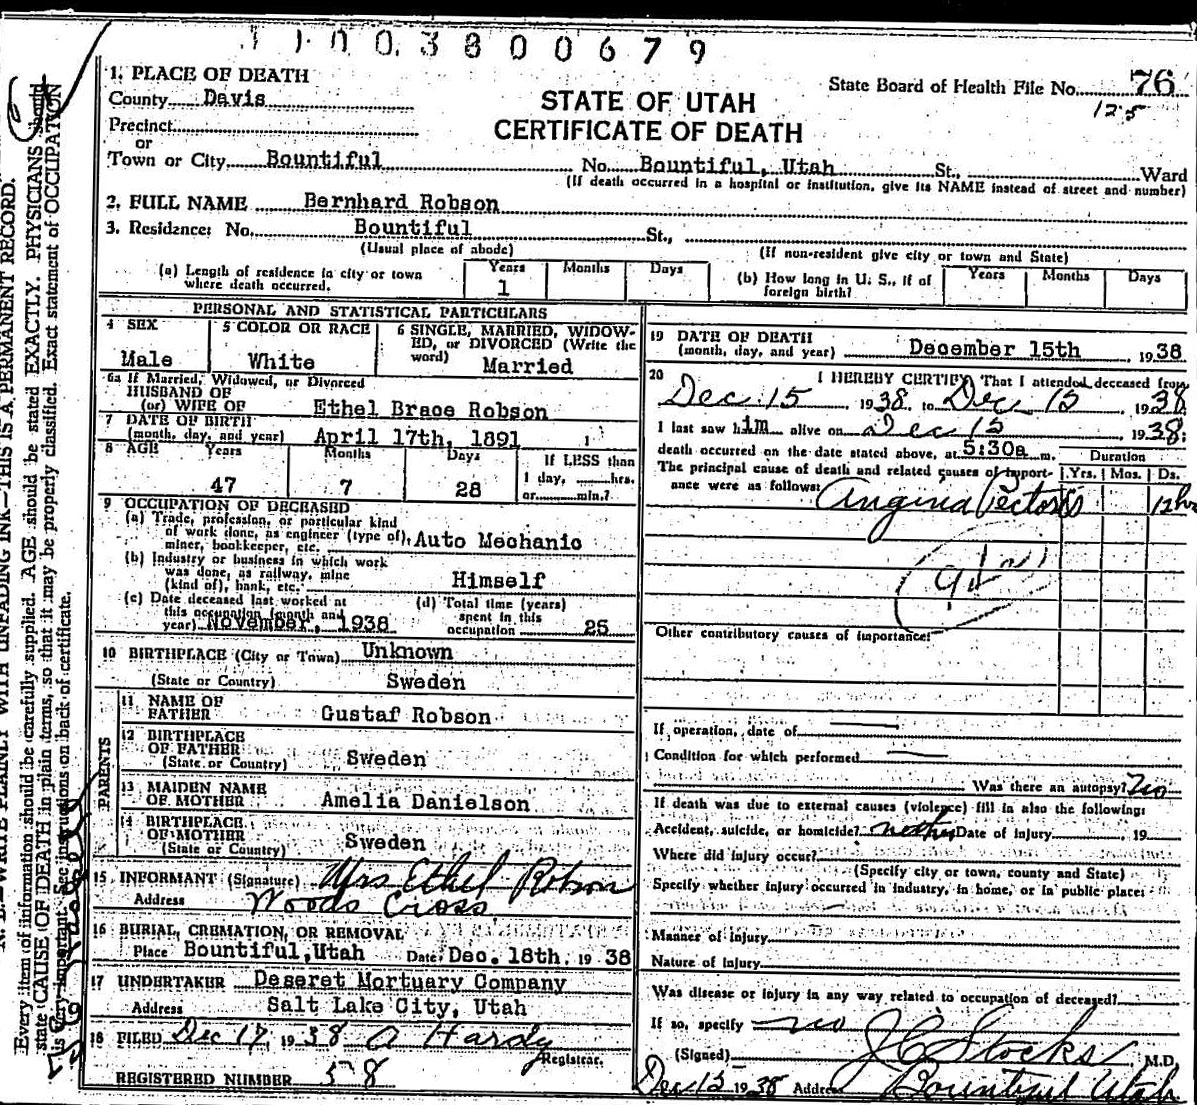 1 1 0 0 3 8 0 0 6 7 9
1. PLACE OF DEATH
County Davis
Precinct
or
Town or City Bountiful No. Bountiful, Utah St., Ward
STATE OF UTAH
CERTIFICATE OF DEATH
State Board of Health File No. 76
125
(If death occurred in a hospital or institution, give its NAME instead of street and number)
2. FULL NAME Bernhard Robson
3. Residence: No. Bountiful St.,
(Usual place of abode) (If non-resident give city or town and State)
(a) Length of residence in city or town where death occurred. Years 1 Months Days
(b) How long in U. S., if of foreign birth? Years Months Days
PERSONAL AND STATISTICAL PARTICULARS
4 SEX Male
5 COLOR OR RACE White
6 SINGLE, MARRIED, WIDOW-
ED, or DIVORCED (Write the
word) Married
6a If Married, Widowed, or Divorced
HUSBAND OF
(or) WIFE OF Ethel Brace Robson
7 DATE OF BIRTH
(month, day, and year) April 17th, 1891
8 AGE Years Months Days If LESS than
47 7 28 1 day, hrs.
or min.?
9 OCCUPATION OF DECEASED
(a) Trade, profession, or particular kind
of work done, as engineer (type of), Auto Mechanic
miner, bookkeeper, etc.
(b) Industry or business in which work
was done, as railway, mine Himself
(kind of), bank, etc.
(c) Date deceased last worked at
this occupation (month and
year) November, 1938
(d) Total time (years)
spent in this
occupation 25
10 BIRTHPLACE (City or Town) Unknown
(State or Country) Sweden
PARENTS
11 NAME OF
FATHER Gustaf Robson
12 BIRTHPLACE
OF FATHER
(State or Country) Sweden
13 MAIDEN NAME
OF MOTHER Amelia Danielson
14 BIRTHPLACE
OF MOTHER
(State or Country) Sweden
15 INFORMANT (Signature) Mrs Ethel Robson
Address Woods Cross
16 BURIAL, CREMATION, OR REMOVAL
Place Bountiful, Utah Date: Dec. 18th. 19 38
17 UNDERTAKER Deseret Mortuary Company
Address Salt Lake City, Utah
18 FILED Dec 17, 1938 A Hardy
Registrar.
REGISTERED NUMBER 58
19 DATE OF DEATH
(month, day, and year) December 15th 1938
20 I HEREBY CERTIFY, That I attended deceased from
Dec. 15 1938 to Dec 15, 1938
I last saw him alive on Dec 15 1938;
death occurred on the date stated above, at 5:30a m.
The principal cause of death and related causes of import-
ance were as follows: Duration Yrs. Mos. Ds.
Angina Pectoris 12 hrs
Other contributory causes of importance:
If operation, date of
Condition for which performed
Was there an autopsy? No
If death was due to external causes (violence) fill in also the following:
Accident, suicide, or homicide? neither Date of injury , 19
Where did injury occur?
(Specify city or town, county and State)
Specify whether injury occurred in industry, in home, or in public place:
Manner of injury
Nature of injury
Was disease or injury in any way related to occupation of deceased?
If so, specify no
(Signed) J C Stocks M.D.
Dec 15 1938 Address Bountiful Utah
WRITE PLAINLY WITH UNFADING INK—THIS IS A PERMANENT RECORD.
Every item of information should be carefully supplied. AGE should be stated EXACTLY. PHYSICIANS should
state CAUSE OF DEATH in plain terms, so that it may be properly classified. Exact statement of OCCUPATION
is very important. See instructions on back of certificate.